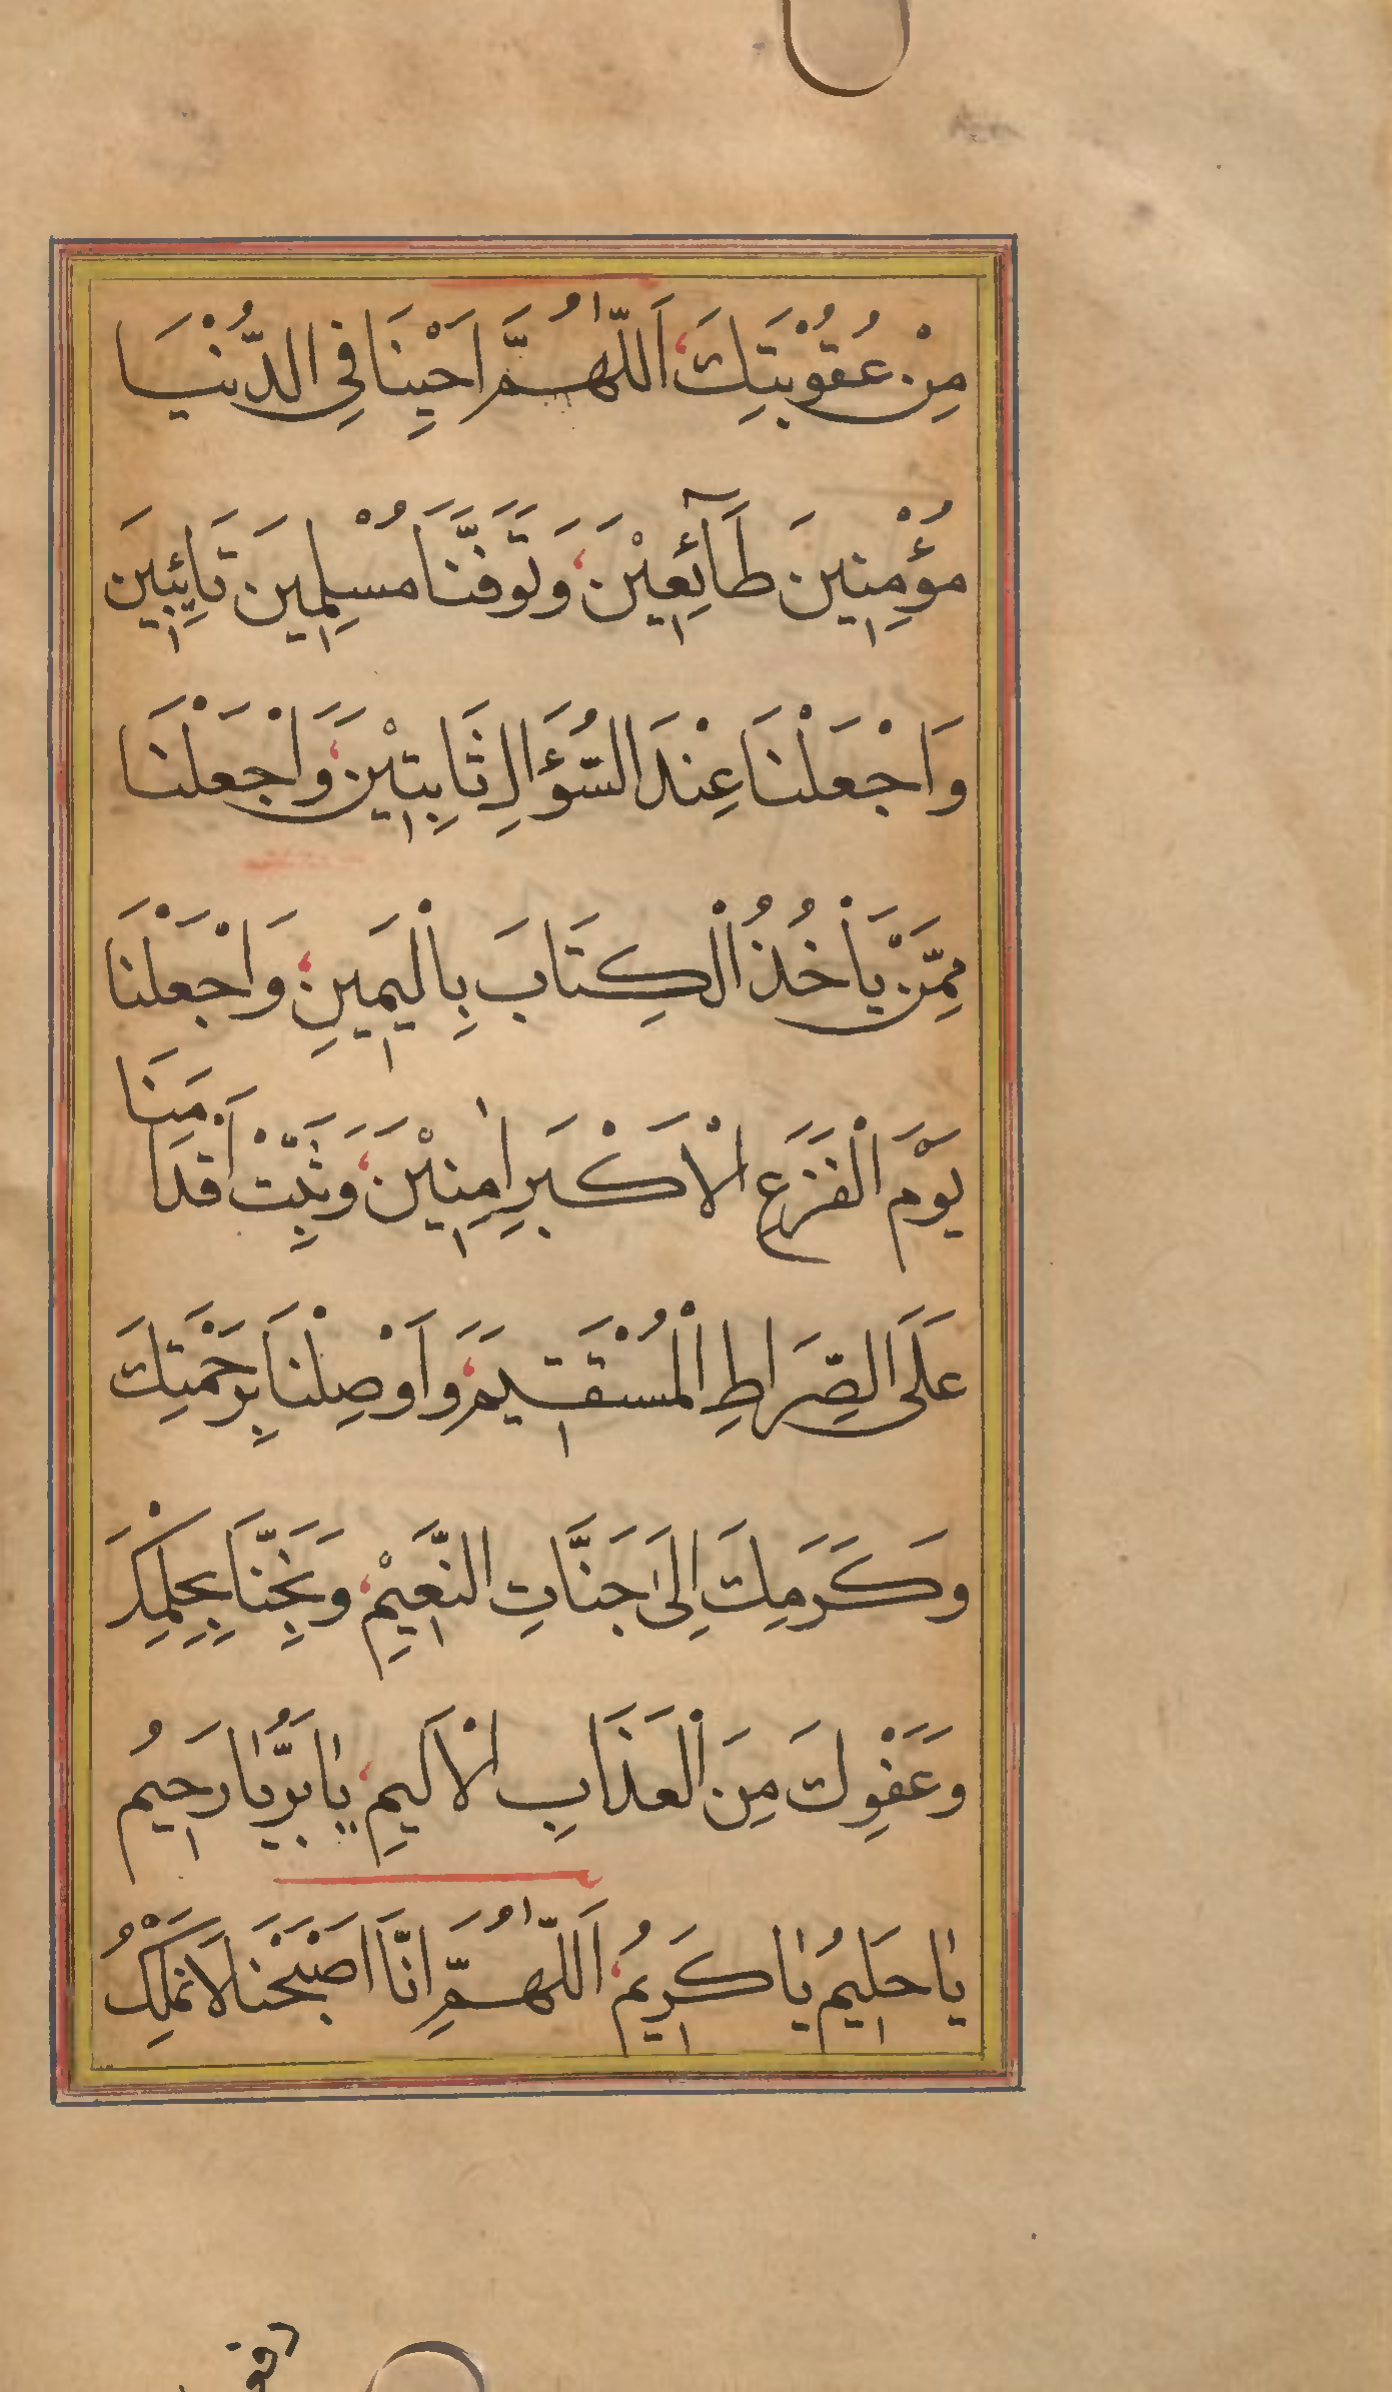 مِنْ عُقُوْبَتِكَ، اَللّٰهُمَّ اَحْيِنَا فِي الدُّنْيَا
مُؤْمِنِينَ طَآئِعِيْنَ، وَتَوَفَّنَا مُسْلِمِينَ تَائِبِينَ
وَاجْعَلْنَا عِنْدَ السُّؤَالِ ثَابِتِيْنَ، وَاجْعَلْنَا
مِمَّنْ يَأْخُذُ الْكِتَابَ بِالْيَمِينِ، وَاجْعَلْنَا
يَوْمَ الْفَزَعِ الْاَكْبَرِ اٰمِنِيْنَ، وَثَبِّتْ اَقْدَامَنَا
عَلَى الصِّرَاطِ الْمُسْتَقِيمِ، وَاَوْصِلْنَا بِرَحْمَتِكَ
وَكَرَمِكَ اِلَى جَنَّاتِ النَّعِيْمِ، وَنَجِّنَا بِحِلْمِكَ
وَعَفْوِكَ مِنَ الْعَذَابِ الْاَلِيمِ، يَا بَرُّ يَا رَحِيمُ
يَا حَلِيمُ يَا كَرِيمُ، اَللّٰهُمَّ اِنَّا اَصْبَحْنَا لَا نَمْلِكُ